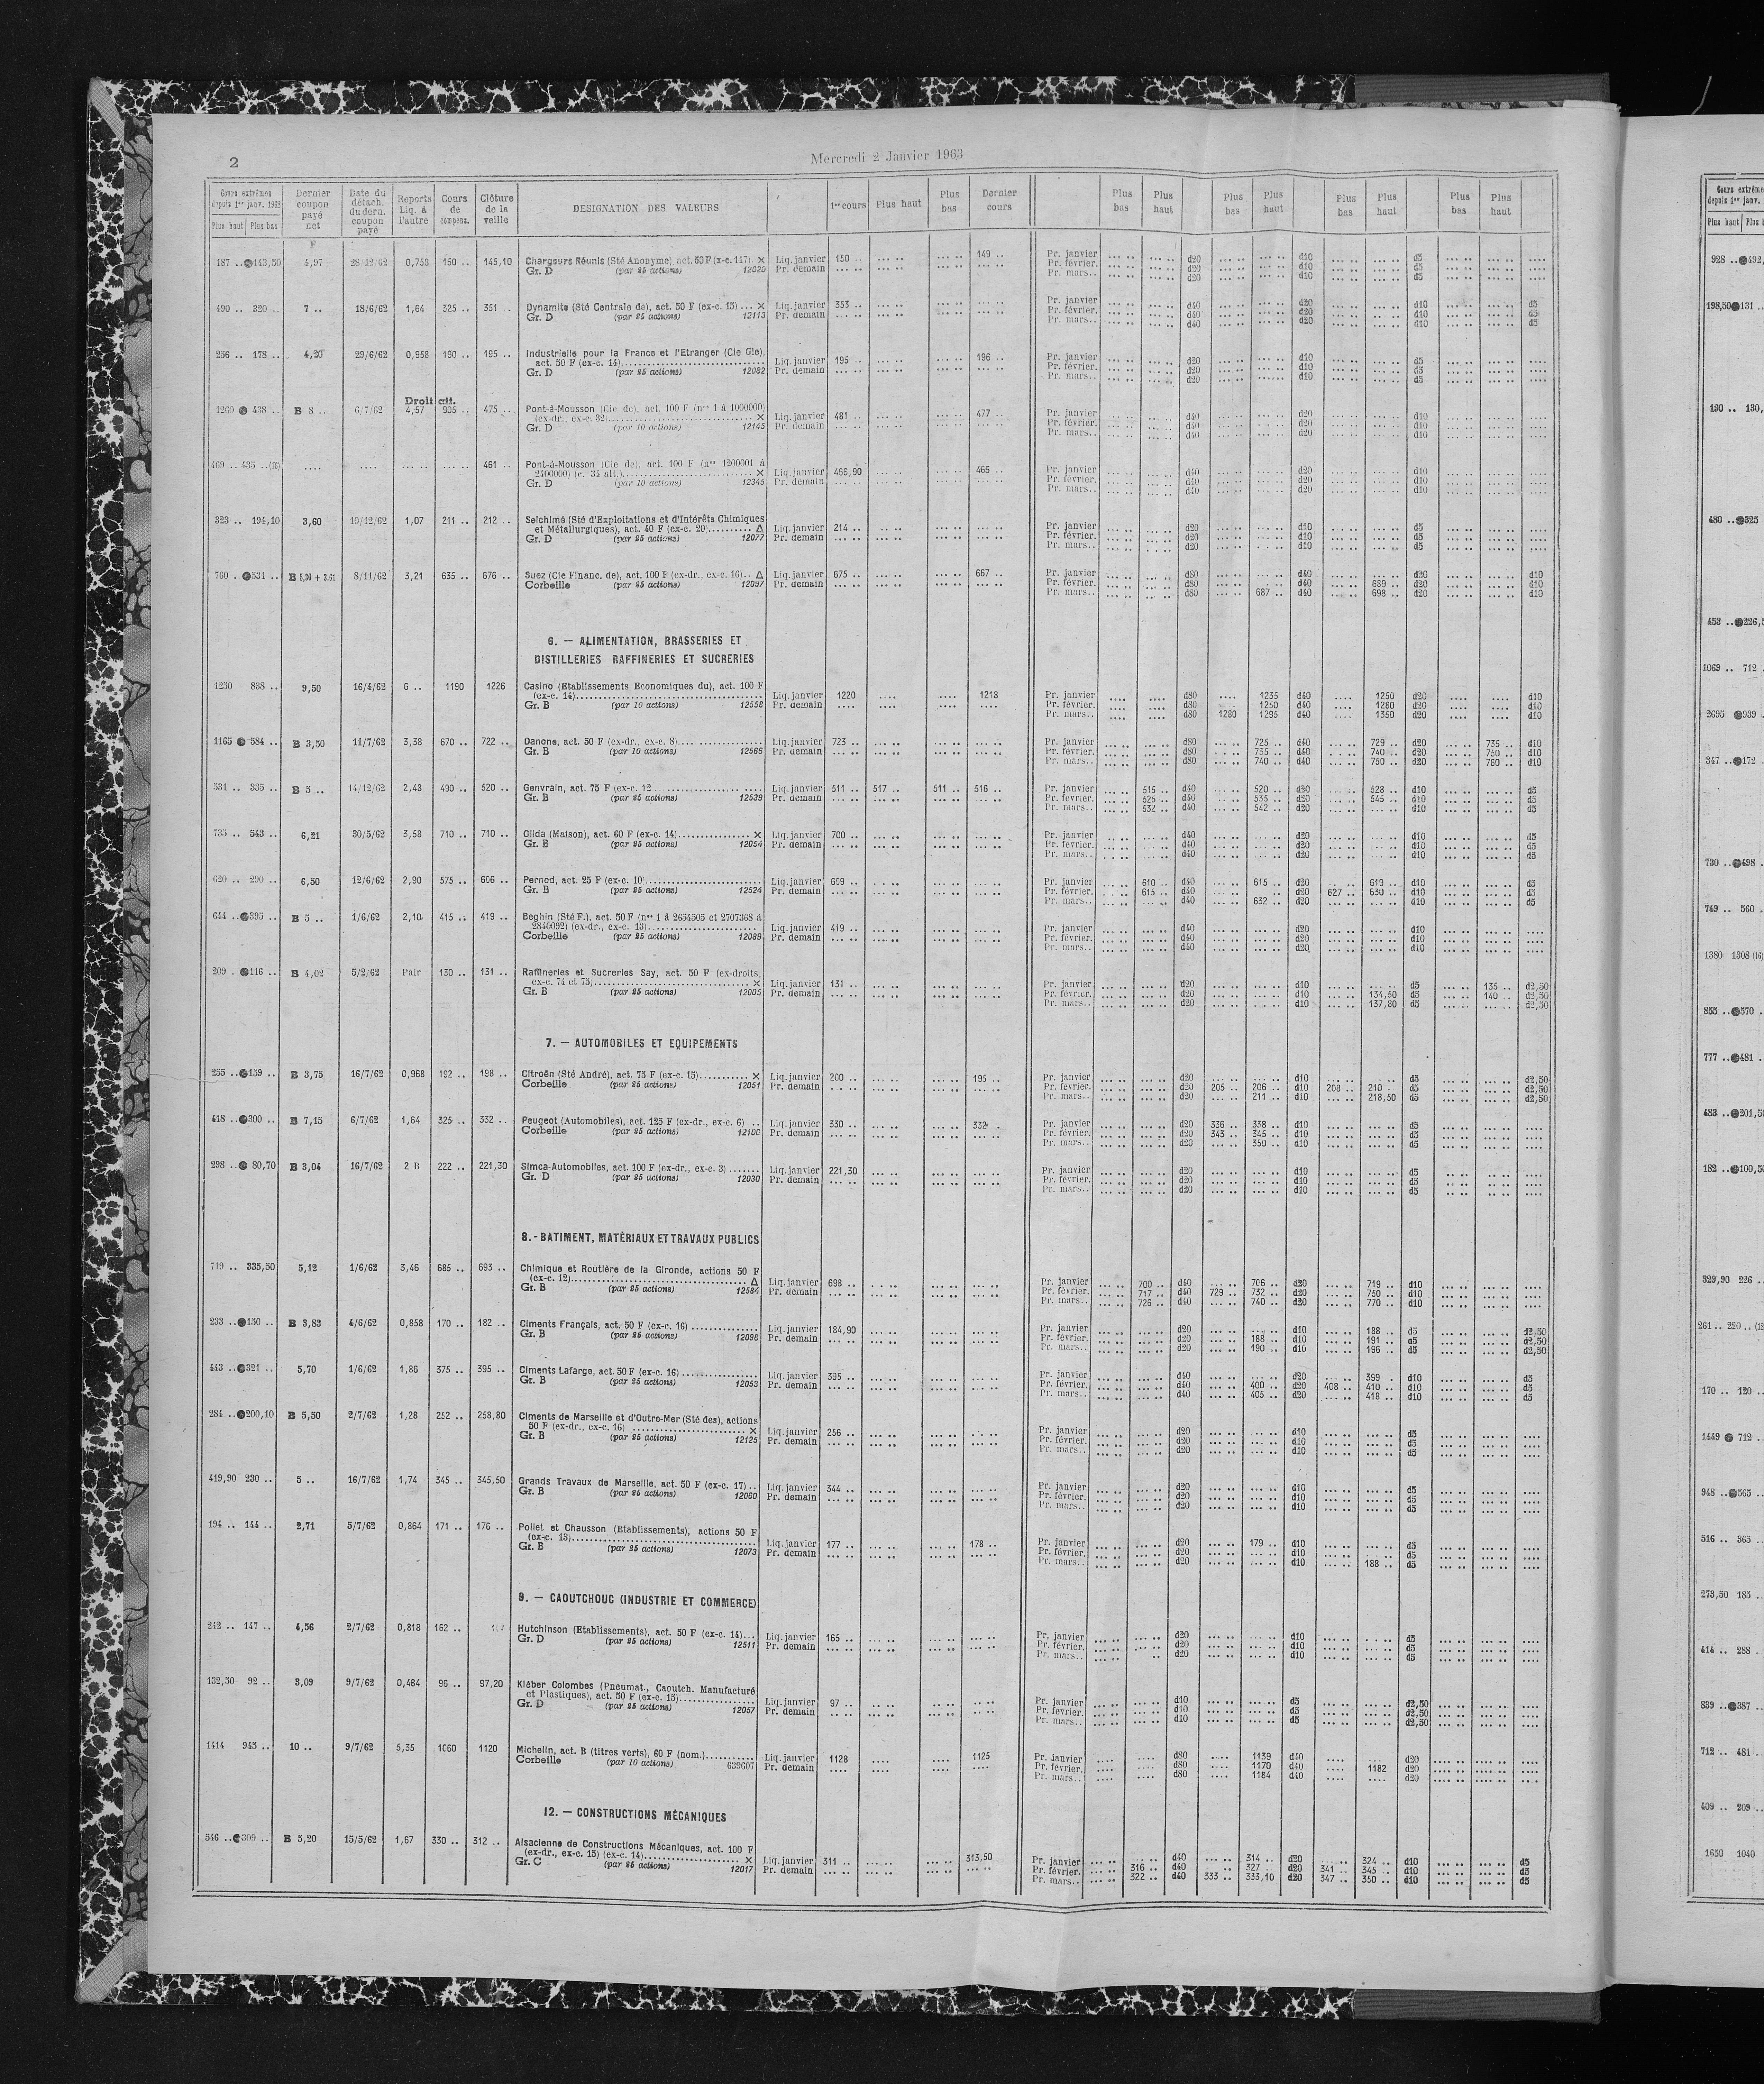 2
Mercredi 2 Janvier 1963
Cours extrêmes depuis 1er janv. 1962 Plus haut Plus bas | Dernier coupon payé net | Date du détach. du dern. coupon payé | Reports Liq. à l'autre | Cours de compens. | Clôture de la veille | DESIGNATION DES VALEURS | 1er cours | Plus haut | Plus bas | Dernier cours | Plus bas | Plus haut | Plus bas | Plus haut | Plus bas | Plus haut | Plus bas | Plus haut
F
187 .. 143,50 4,97 28/12/62 0,753 150 .. 145,10 Chargeurs Réunis (Sté Anonyme), act. 50 F (x-c. 117). × Liq. janvier 150 .. 149 .. Pr. janvier d20 d10 d5
Gr. D (par 25 actions) 12020 Pr. demain Pr. février. d20 d10 d5
Pr. mars.. d20 d10 d5
490 .. 320 .. 7 .. 18/6/62 1,64 325 .. 351 .. Dynamite (Sté Centrale de), act. 50 F (ex-c. 15) ... × Liq. janvier 353 .. Pr. janvier d40 d20 d10 d5
Gr. D (par 25 actions) 12113 Pr. demain Pr. février. d40 d20 d10 d5
Pr. mars.. d40 d20 d10 d5
236 .. 178 .. 4,20 29/6/62 0,958 190 .. 195 .. Industrielle pour la France et l'Etranger (Cie Gle),
act. 50 F (ex-c. 14) Liq. janvier 195 .. 196 .. Pr. janvier d20 d10 d5
Gr. D (par 25 actions) 12082 Pr. demain Pr. février. d20 d10 d5
Pr. mars.. d20 d10 d5
Droit att.
1260 438 .. B 8 .. 6/7/62 4,57 905 .. 475 .. Pont-à-Mousson (Cie de), act. 100 F (nos 1 à 1000000)
(ex-dr., ex-c. 32) × Liq. janvier 481 .. 477 .. Pr. janvier d40 d20 d10
Gr. D (par 10 actions) 12145 Pr. demain Pr. février. d40 d20 d10
Pr. mars.. d40 d20 d10
469 .. 435 ..(15) .... .... 461 .. Pont-à-Mousson (Cie de), act. 100 F (nos 1200001 à
2400000) (c. 34 att.) × Liq. janvier 466,90 465 .. Pr. janvier d40 d20 d10
Gr. D (par 10 actions) 12345 Pr. demain Pr. février. d40 d20 d10
Pr. mars.. d40 d20 d10
323 .. 194,10 3,60 10/12/62 1,07 211 .. 212 .. Selchimé (Sté d'Exploitations et d'Intérêts Chimiques
et Métallurgiques), act. 40 F (ex-c. 20) Δ Liq. janvier 214 .. Pr. janvier d20 d10 d5
Gr. D (par 25 actions) 12077 Pr. demain Pr. février. d20 d10 d5
Pr. mars.. d20 d10 d5
760 .. 531 .. B 5,30 + 3,61 8/11/62 3,21 635 .. 676 .. Suez (Cie Financ. de), act. 100 F (ex-dr., ex-c. 16).. Δ Liq. janvier 675 .. 667 .. Pr. janvier d80 d40 d20 d10
Corbeille (par 25 actions) 12097 Pr. demain Pr. février. d80 d40 689 .. d20 d10
Pr. mars.. d80 687 .. d40 698 .. d20 d10
6. — ALIMENTATION, BRASSERIES ET
DISTILLERIES RAFFINERIES ET SUCRERIES
1250 838 .. 9,50 16/4/62 6 .. 1190 1226 Casino (Etablissements Economiques du), act. 100 F
(ex-c. 14) Liq. janvier 1220 1218 Pr. janvier d80 1235 d40 1250 d20 d10
Gr. B (par 10 actions) 12558 Pr. demain Pr. février. d80 1250 d40 1280 d20 d10
Pr. mars.. d80 1280 1295 d40 1350 d20 d10
1165 584 .. B 3,50 11/7/62 3,38 670 .. 722 .. Danone, act. 50 F (ex-dr., ex-c. 8) Liq. janvier 723 .. Pr. janvier d80 725 .. d40 729 .. d20 735 .. d10
Gr. B (par 10 actions) 12566 Pr. demain Pr. février. d80 735 .. d40 740 .. d20 750 .. d10
Pr. mars.. d80 740 .. d40 750 .. d20 760 .. d10
531 .. 335 .. B 5 .. 14/12/62 2,48 490 .. 520 .. Genvrain, act. 75 F (ex-c. 12 Liq. janvier 511 .. 517 .. 511 .. 516 .. Pr. janvier 515 .. d40 520 .. d20 528 .. d10 d5
Gr. B (par 25 actions) 12539 Pr. demain Pr. février. 525 .. d40 535 .. d20 545 .. d10 d5
Pr. mars.. 532 .. d40 542 .. d20 d10 d5
735 .. 543 .. 6,21 30/5/62 3,58 710 .. 710 .. Olida (Maison), act. 60 F (ex-c. 14) × Liq. janvier 700 .. Pr. janvier d40 d20 d10 d5
Gr. B (par 25 actions) 12054 Pr. demain Pr. février. d40 d20 d10 d5
Pr. mars.. d40 d20 d10 d5
620 .. 290 .. 6,50 12/6/62 2,90 575 .. 606 .. Pernod, act. 25 F (ex-c. 10) Liq. janvier 609 .. Pr. janvier 610 .. d40 615 .. d20 619 .. d10 d5
Gr. B (par 25 actions) 12524 Pr. demain Pr. février. 615 .. d40 d20 627 .. 630 .. d10 d5
Pr. mars.. d40 632 .. d20 d10 d5
644 .. 395 .. B 5 .. 1/6/62 2,10 415 .. 419 .. Beghin (Sté F.), act. 50 F (nos 1 à 2654505 et 2707368 à
2840092) (ex-dr., ex-c. 13) Liq. janvier 419 .. Pr. janvier d40 d20 d10
Corbeille (par 25 actions) 12089 Pr. demain Pr. février. d40 d20 d10
Pr. mars.. d40 d20 d10
209 . 116 .. B 4,02 5/2/62 Pair 130 .. 131 .. Raffineries et Sucreries Say, act. 50 F (ex-droits,
ex-c. 74 et 75) × Liq. janvier 131 .. Pr. janvier d20 d10 d5 135 .. d2,50
Gr. B (par 25 actions) 12005 Pr. demain Pr. février. d20 d10 134,50 d5 140 .. d2,50
Pr. mars.. d20 d10 137,80 d5 d2,50
7. — AUTOMOBILES ET EQUIPEMENTS
255 .. 159 .. B 3,75 16/7/62 0,968 192 .. 198 .. Citroën (Sté André), act. 75 F (ex-c. 15) × Liq. janvier 200 .. 195 .. Pr. janvier d20 d10 d5 d2,50
Corbeille (par 25 actions) 12051 Pr. demain Pr. février. d20 205 .. 206 .. d10 208 .. 210 d5 d2,50
Pr. mars.. d20 211 .. d10 218,50 d5 d2,50
418 .. 300 .. B 7,15 6/7/62 1,64 325 .. 332 .. Peugeot (Automobiles), act. 125 F (ex-dr., ex-c. 6) .. Liq. janvier 330 .. 332 .. Pr. janvier d20 336 .. 338 .. d10 d5
Corbeille (par 25 actions) 12100 Pr. demain Pr. février. d20 343 .. 345 .. d10 d5
Pr. mars.. d20 350 .. d10 d5
298 .. 80,70 B 3,04 16/7/62 2 B 222 .. 221,30 Simca-Automobiles, act. 100 F (ex-dr., ex-c. 3) Liq. janvier 221,30 Pr. janvier d20 d10 d5
Gr. D (par 25 actions) 12030 Pr. demain Pr. février. d20 d10 d5
Pr. mars.. d20 d10 d5
8.- BATIMENT, MATÉRIAUX ET TRAVAUX PUBLICS
719 .. 335,50 5,12 1/6/62 3,46 685 .. 693 .. Chimique et Routière de la Gironde, actions 50 F
(ex-c. 12) Δ Liq. janvier 698 .. Pr. janvier 700 .. d40 706 .. d20 719 .. d10
Gr. B (par 25 actions) 12584 Pr. demain Pr. février. 717 .. d40 729 .. 732 .. d20 750 .. d10
Pr. mars.. 726 .. d40 740 .. d20 770 .. d10
233 .. 150 .. B 3,83 4/6/62 0,858 170 .. 182 .. Ciments Français, act. 50 F (ex-c. 16) Liq. janvier 184,90 Pr. janvier d20 d10 188 .. d5 d2,50
Gr. B (par 25 actions) 12098 Pr. demain Pr. février. d20 188 .. d10 191 .. d5 d2,50
Pr. mars.. d20 190 .. d10 196 .. d5 d2,50
443 .. 321 .. 5,70 1/6/62 1,86 375 .. 395 .. Ciments Lafarge, act. 50 F (ex-c. 16) Liq. janvier 395 .. Pr. janvier d40 d20 399 . d10 d5
Gr. B (par 25 actions) 12053 Pr. demain Pr. février. d40 400 .. d20 408 .. 410 .. d10 d5
Pr. mars.. d40 405 .. d20 418 .. d10 d5
284 .. 200,10 B 5,50 2/7/62 1,28 252 .. 258,80 Ciments de Marseille et d'Outre-Mer (Sté des), actions
50 F (ex-dr., ex-c. 16) × Liq. janvier 256 .. Pr. janvier d20 d10 d5
Gr. B (par 25 actions) 12125 Pr. demain Pr. février. d20 d10 d5
Pr. mars.. d20 d10 d5
419,90 230 .. 5 .. 16/7/62 1,74 345 .. 345,50 Grands Travaux de Marseille, act. 50 F (ex-c. 17) .. Liq. janvier 344 .. Pr. janvier d20 d10 d5
Gr. B (par 25 actions) 12060 Pr. demain Pr. février. d20 d10 d5
Pr. mars.. d20 d10 d5
194 .. 144 .. 2,71 5/7/62 0,864 171 .. 176 .. Poliet et Chausson (Etablissements), actions 50 F
(ex-c. 13) Liq. janvier 177 .. 178 .. Pr. janvier d20 179 .. d10 d5
Gr. B (par 25 actions) 12073 Pr. demain Pr. février. d20 d10 d5
Pr. mars.. d20 d10 188 .. d5
9. — CAOUTCHOUC (INDUSTRIE ET COMMERCE)
242 .. 147 .. 4,56 2/7/62 0,818 162 .. Hutchinson (Etablissements), act. 50 F (ex-c. 14)... Liq. janvier 165 .. Pr. janvier d20 d10 d5
Gr. D (par 25 actions) 12511 Pr. demain Pr. février. d20 d10 d5
Pr. mars.. d20 d10 d5
132,50 92 .. 3,09 9/7/62 0,484 96 .. 97,20 Kléber Colombes (Pneumat., Caoutch. Manufacturé
et Plastiques), act. 50 F (ex-c. 15) Liq. janvier 97 .. Pr. janvier d10 d5 d2,50
Gr. D (par 25 actions) 12057 Pr. demain Pr. février. d10 d5 d2,50
Pr. mars.. d10 d5 d2,50
1414 945 .. 10 .. 9/7/62 5,35 1060 1120 Michelin, act. B (titres verts), 60 F (nom.) Liq. janvier 1128 1125 Pr. janvier d80 1139 d40 d20
Corbeille (par 10 actions) 639607 Pr. demain Pr. février. d80 1170 d40 1182 d20
Pr. mars.. d80 1184 d40 d20
12. — CONSTRUCTIONS MÉCANIQUES
546 .. 309 .. B 5,20 15/5/62 1,67 330 .. 312 .. Alsacienne de Constructions Mécaniques, act. 100 F
(ex-dr., ex-c. 13) (ex-c. 14) × Liq. janvier 311 .. 313,50 Pr. janvier d40 314 .. d20 324 .. d10 d5
Gr. C (par 25 actions) 12017 Pr. demain Pr. février. 316 .. d40 327 .. d20 341 .. 345 .. d10 d5
Pr. mars.. 322 .. d40 333 .. 333,10 d20 347 .. 350 .. d10 d5
Cours extrême
depuis 1er janv.
Plus haut Plus
928 .. 492,
198,50 131 ..
190 .. 130,
480 .. 325
453 .. 226,5
1069 .. 712 .
2695 939 .
347 .. 172 .
730 .. 498 .
749 .. 560 .
1380 1308 (16)
855 .. 570 .
777 .. 481 .
483 .. 201,5
182 .. 100,50
329,90 226 ..
261 .. 220 .. (12
170 .. 120 ..
1449 712 ..
948 .. 565 ..
516 .. 365 ..
273,50 185 ..
414 .. 288 .
839 .. 387 ..
712 .. 481 .
409 .. 209 ..
1650 1040